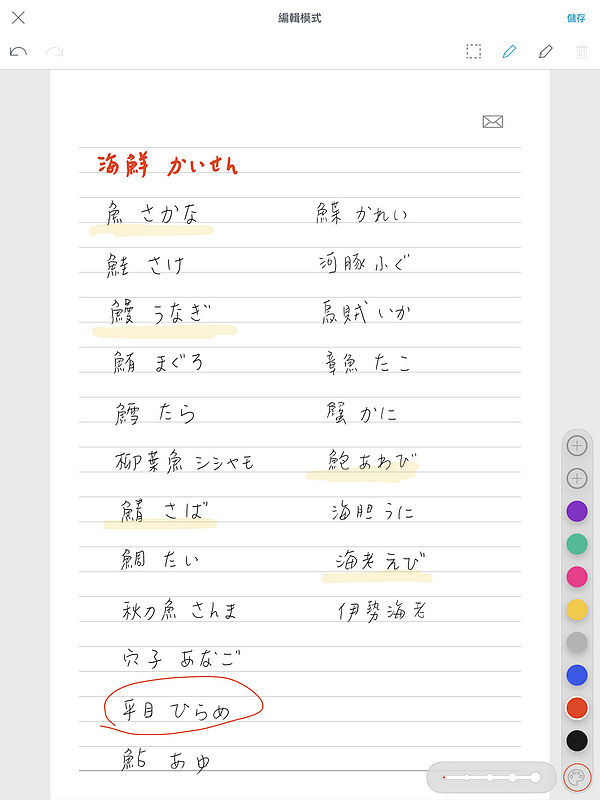 編輯模式
儲存
海鮮 かいせん
魚 さかな
鮭 さけ
鰻 うなぎ
鮪 まぐろ
鱈 たら
柳葉魚 シシャモ
鯖 さば
鯛 たい
秋刀魚 さんま
穴子 あなご
平目 ひらめ
鮎 あゆ
鰈 かれい
河豚 ふぐ
烏賊 いか
章魚 たこ
蟹 かに
鮑 あわび
海胆 うに
海老 えび
伊勢海老